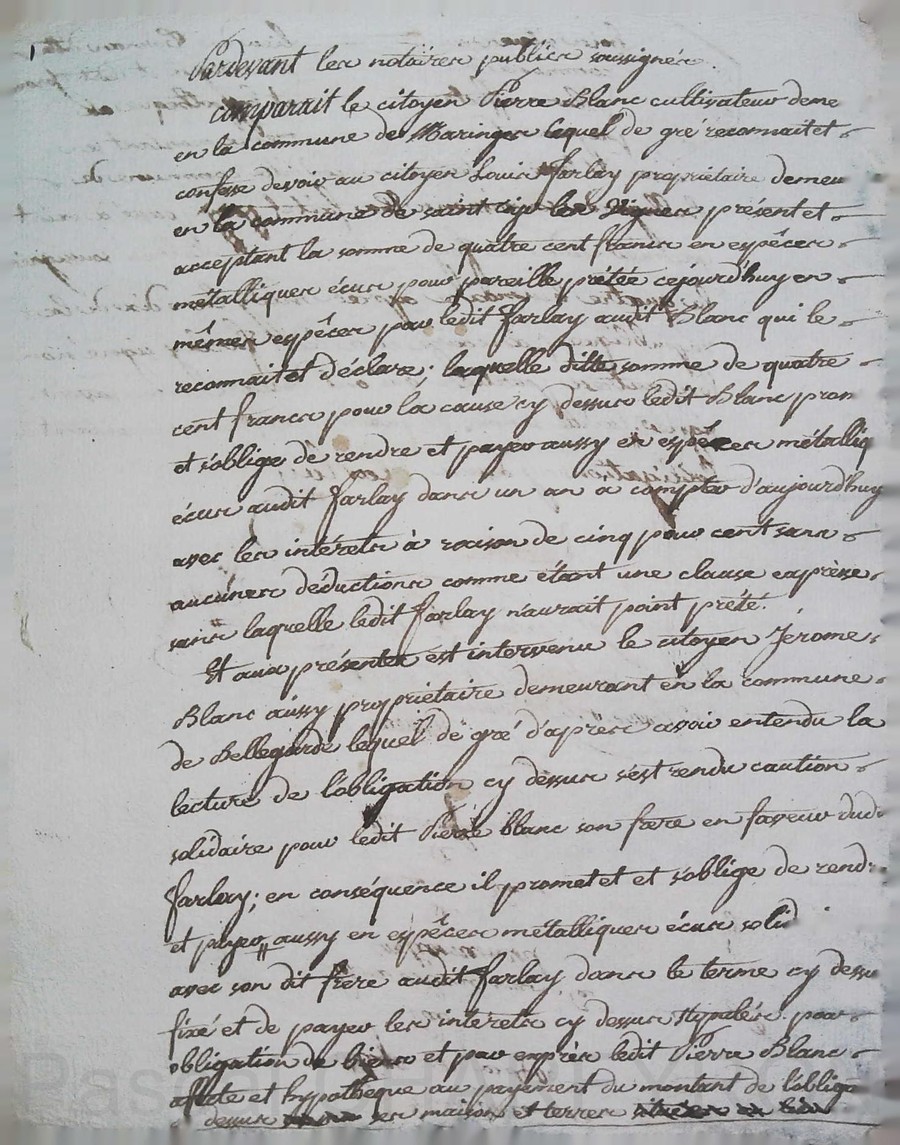 Pardevant les notäires publics soussignés.
comparait le citoyen Pierre Blanc cultivateur deme
en la commune de Maringes lequel de gré reconnait et
confesse devoir au citoyen Louis farlay propriétaire demeu
en la commune de saint cyr les Vignes présent et
acceptant la somme de quatre cent francs en espêces
métalliques écus pour pareille prétée cejourd'huy en
mêmes espêces par ledit farlay audit Blanc qui le
reconnait et déclare; laquelle ditte somme de quatre
cent francs pour la cause cy dessus ledit Blanc prom
et s'oblige de rendre et payer aussy en espéces métalliq
écus audit farlay dans un an a compter d'aujourd'huy
avec les intérets à raison de cinq pour cent sans
aucunes déductions comme étant une clause expresse
sans laquelle ledit farlay n'aurait point prété.
Et aux présentes est intervenu le citoyen Jérome
Blanc aussy propriétaire demeurant en la commune
de Bellegarde lequel de gré d'après avoir entendu la
lecture de l'obligation cy dessus s'est rendu caution
solidaire pour ledit Pierre blanc son frere en faveur dud
farlay; en conséquence il promet et et s'oblige de rend
et payer aussy en espêces métalliques écus solid
avec son dit frere audit farlay dans le terme cy dessu
fixé et de payer les intérets cy dessus stipulés. pour
obligation de biens et par exprès ledit Pierre Blanc
afecte et hypothèque au payement du montant de l'obliga
dessus ses maison et terres